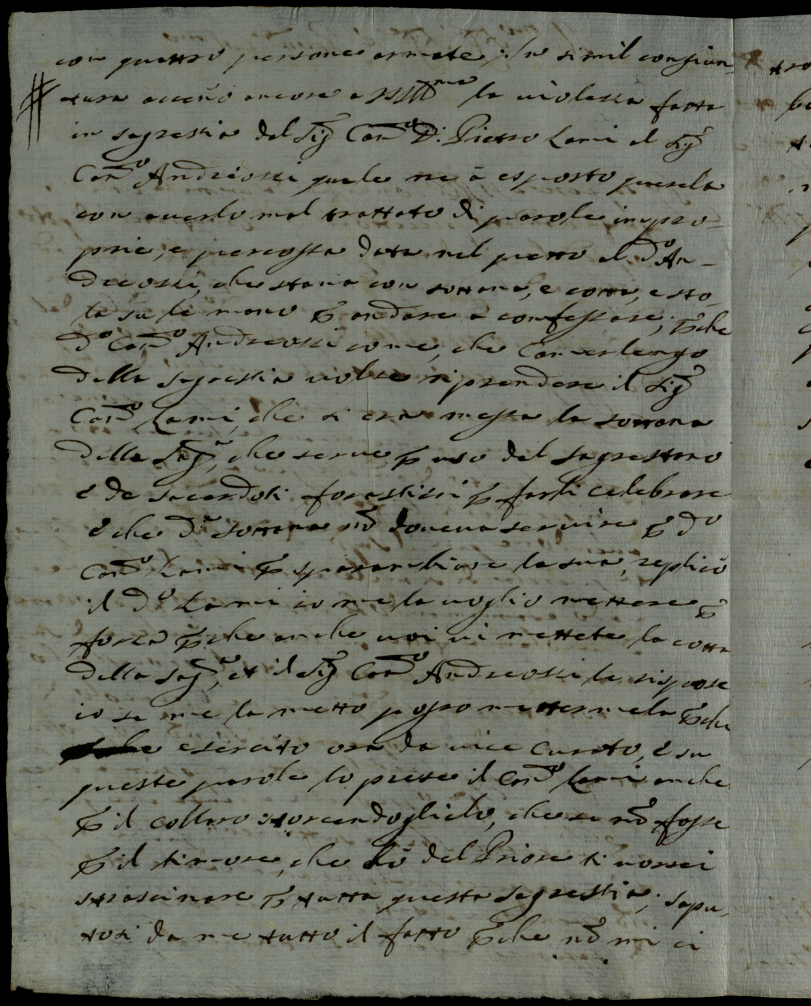 con quattro persone armate; In simil congiun-
tura accennò ancora a VSIll.ma la violenza fatta
in sagrestia dal Sig.r Can.co D. Pietro Lami al Sig.r
Can.co Andreossi quale ne à esposto querela
con averlo mal trattato di parole impro-
prie, e percossa data nel petto al d.o An-
dreossi, che stava con sottana, e cotta, e sto-
la su le mano p andare a confessare; pche
d.o Can.co Andreossi come, che Camerlengo
della sagrestia volse riprendere il Sig.r
Can.co Lami che si era messa la sottana
della Sag.a, che serve p uso del sagrestano
e de sacerdoti forastieri p farli celebrare
e che d.a sottana nō doveva servire p d.o
Can.co Lami p sparambiare la sua, replicò
il d.o Lami io me la voglio mettere p
forza pche anche voi vi mettete la cotta
della Sag.a, et il Sig.r Can.co Andreossi le rispose
io se me la metto posso mettermela pche
esercito ora da vice Curato, e su
queste parole lo prese il Can.co Lami anche
p il collaro storcendoglielo, che se nō fosse
p il timore, che hò del Priore ti vorrei
strascinare p tutta questa sagrestia; sapu-
tosi da me tutto il fatto pche nō mi ci